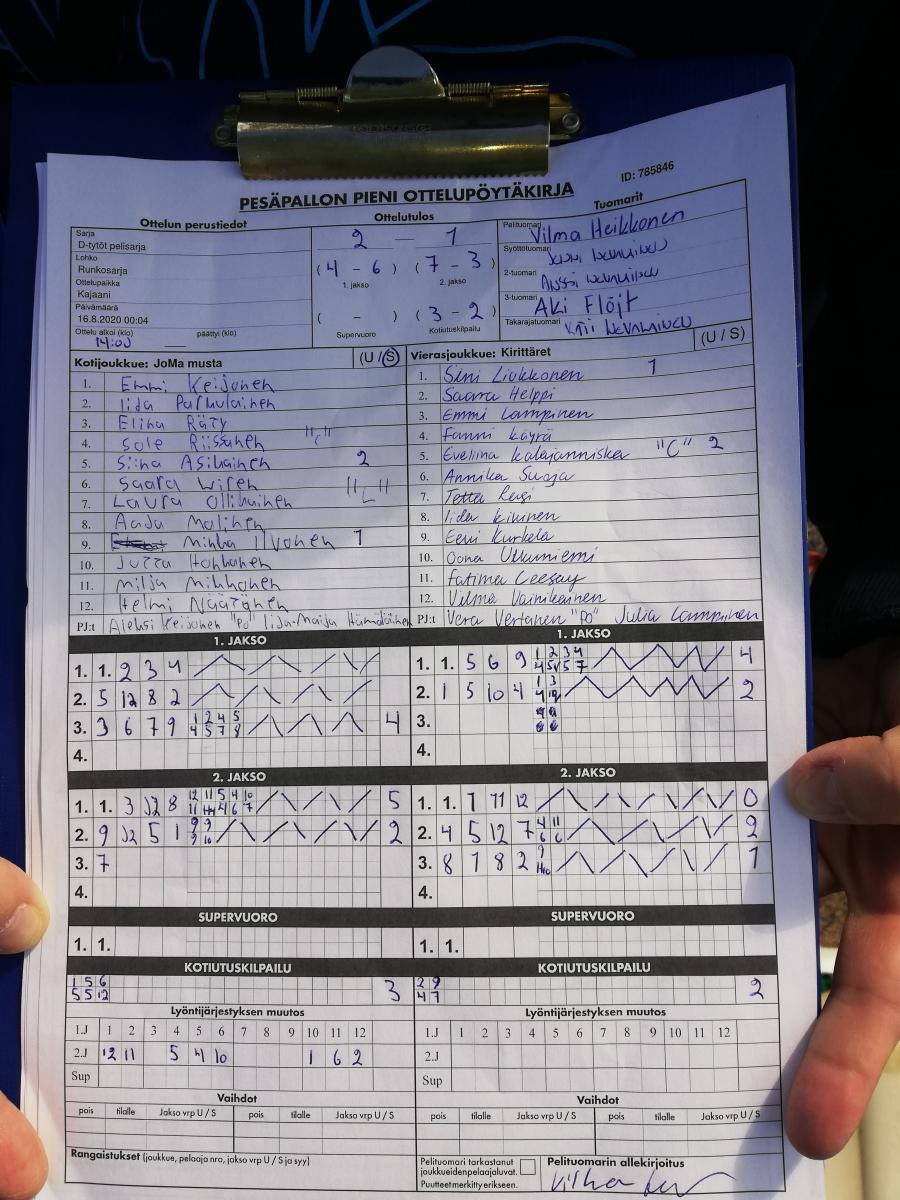 ID: 785846
PESÄPALLON PIENI OTTELUPÖYTÄKIRJA
Ottelun perustiedot
Ottelutulos
Tuomarit
Sarja
D-tytöt pelisarja
Lohko
Runkosarja
Ottelupaikka
Kajaani
Päivämäärä
16.8.2020 00:04
Ottelu alkoi (klo) päättyi (klo)
14:00
2 — 1
(4 - 6) (7 - 3)
1. jakso 2. jakso
( - ) (3 - 2)
Supervuoro Kotiutuskilpailu
Pelituomari Vilma Heikkonen
Syöttötuomari
2-tuomari Anssi
3-tuomari Aki Flöjt
Takarajatuomari
Kotijoukkue: JoMa musta (U / S)
1. Emmi Keijonen
2. Iida Parkulainen
3. Elina Räty
4. Sole Riissanen "C"
5. Siina Asikainen 2
6. Saara Wiren "L"
7. Laura Ollikainen
8. Aada Malinen
9. Minka Ilvonen 1
10. Jutta Honkanen
11. Milja Mikkonen
12. Helmi Näätänen
PJ:t Aleksi Keijonen "Po" Iida-Maija Hämäläinen
Vierasjoukkue: Kirittäret (U / S)
1. Sini Liukkonen 1
2. Saara Helppi
3. Emmi Lampinen
4. Fanni Käyrä
5. Eveliina Kalajanniska "C" 2
6. Annika Suoja
7. Tetta Rusi
8. Iida Kivinen
9. Eeni Kurkela
10. Oona Ulkuniemi
11. Fatima Ceesay
12. Vilma Vainikainen
PJ:t Vera Vertanen "Po" Julia Lampinen
1. JAKSO
1. 1. 2 3 4
2. 5 12 8 2
3. 3 6 7 9 1 2 4 5 4
4 5 7 8
4.
1. JAKSO
1. 1. 5 6 9 1 2 3 4 4
4 5 7
2. 1 5 10 4 1 3 2
3.
4.
2. JAKSO
1. 1. 3 12 8 12 11 5 4 10 5
11 4 6 7
2. 9 12 5 1 9 9 2
9 10
3. 7
4.
2. JAKSO
1. 1. 7 11 12 0
2. 4 5 12 7 4 11 2
6 6
3. 8 1 8 2 9 1
4.
SUPERVUORO
1. 1.
SUPERVUORO
1. 1.
KOTIUTUSKILPAILU
1 5 6 3
5 5 12
KOTIUTUSKILPAILU
2 9 2
4 7
Lyöntijärjestyksen muutos
1.J 1 2 3 4 5 6 7 8 9 10 11 12
2.J 12 11 5 4 10 1 6 2
Sup
Lyöntijärjestyksen muutos
1.J 1 2 3 4 5 6 7 8 9 10 11 12
2.J
Sup
Vaihdot
pois tilalle Jakso vrp U / S pois tilalle Jakso vrp U / S
Vaihdot
pois tilalle Jakso vrp U / S pois tilalle Jakso vrp U / S
Rangaistukset (joukkue, pelaaja nro, jakso vrp U / S ja syy)
Pelituomari tarkastanut
joukkueidenpelaajaluvat.
Puutteet merkitty erikseen.
Pelituomarin allekirjoitus